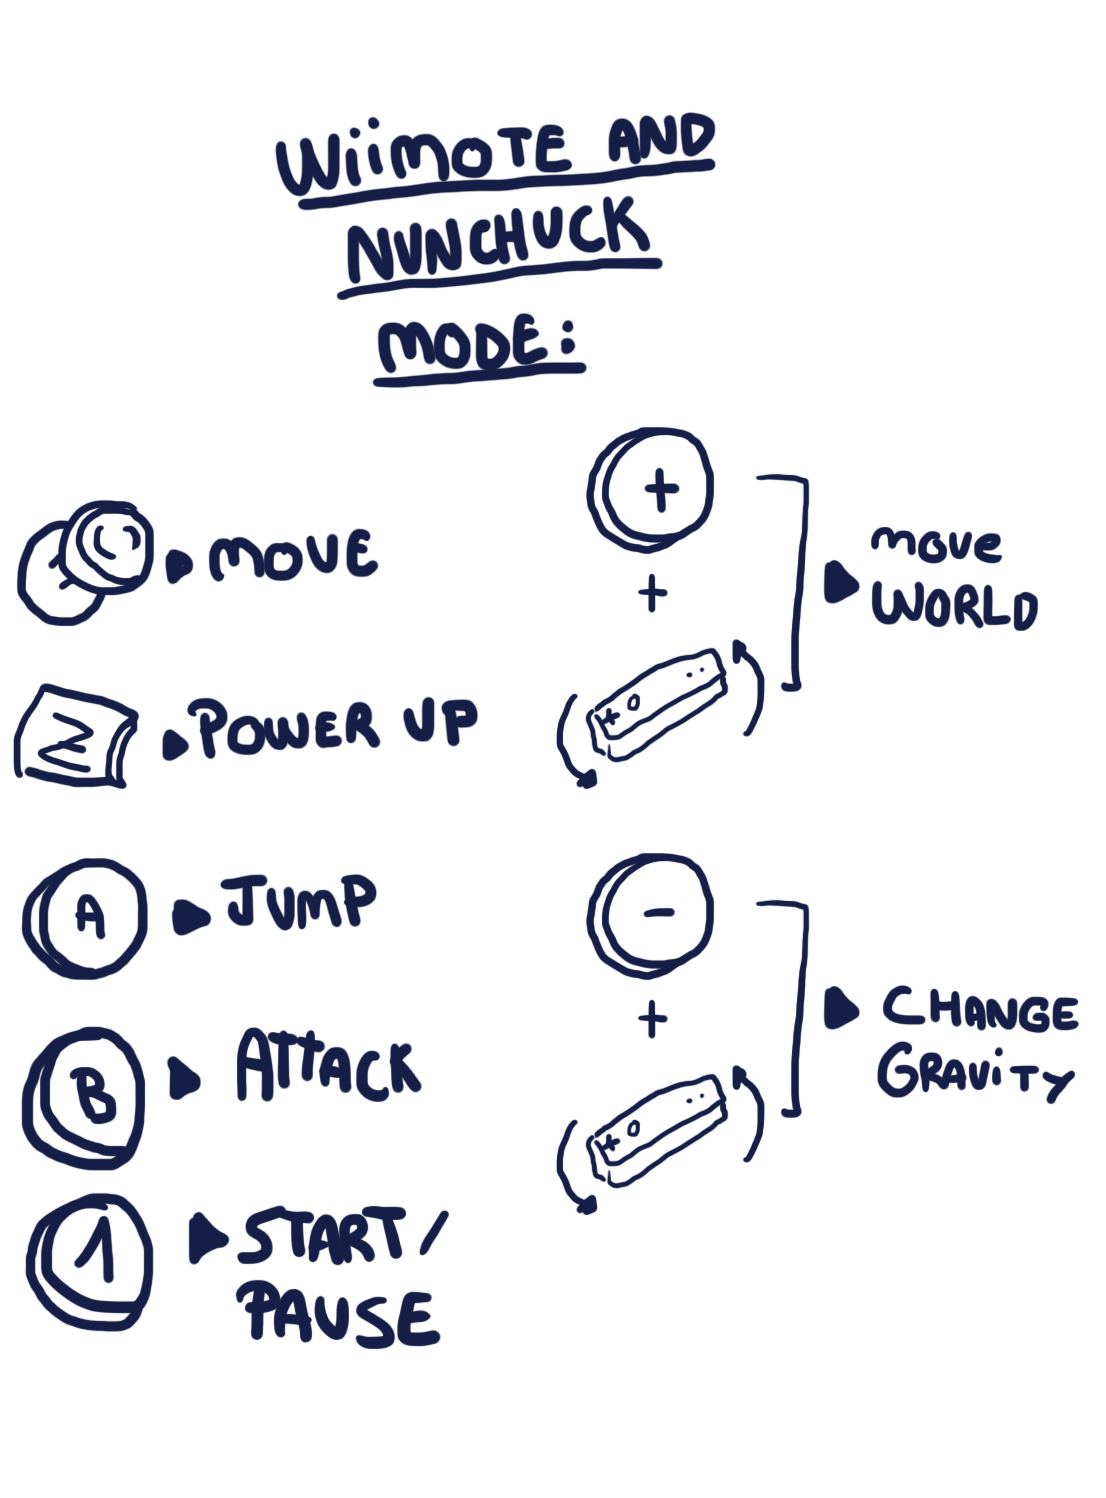 WiiMOTE AND
NUNCHUCK
MODE:
MOVE
Z
POWER UP
A
JUMP
B
ATTACK
1
START/
PAUSE
+
+
MOVE
WORLD
-
+
CHANGE
GRAViTY